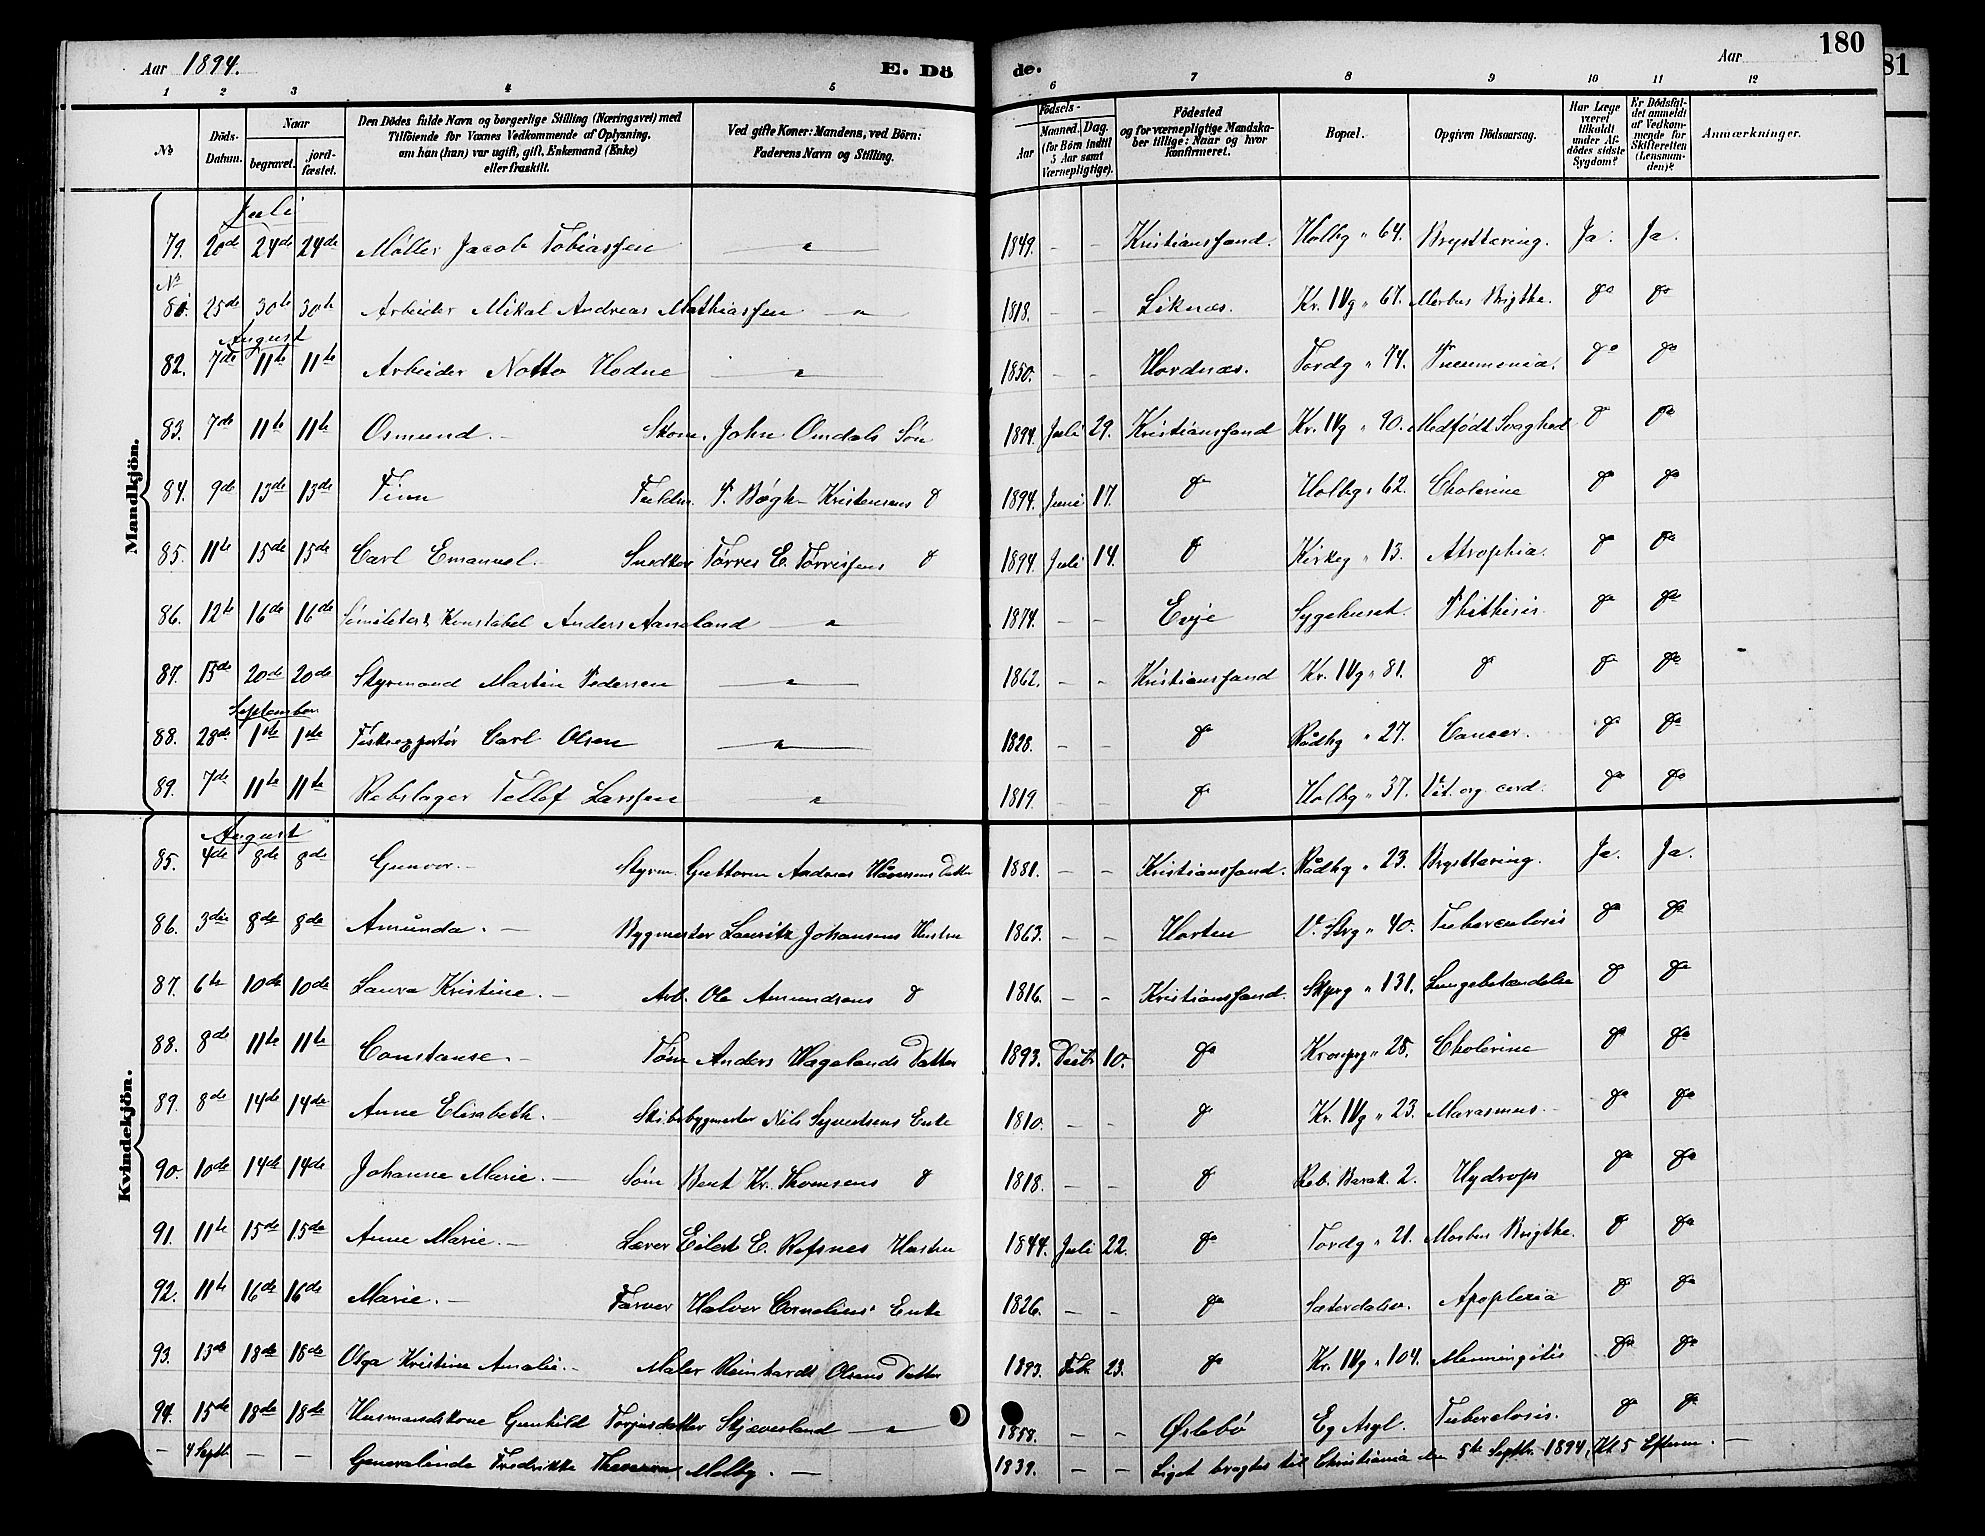 Aar 1894. E. Dö de. Aar 180
81
1 2 3 4 5 6 7 8 9 10 11 12
No Döds-Datum. Naar begravet. jord-fæstet. Den Dödes fulde Navn og borgerlige Stilling (Næringsvei) med Tilföiende for Voxnes Vedkommende af Oplysning, om han (hun) var ugift, gift, Enkemand (Enke) eller fraskilt. Ved gifte Koner: Mandens, ved Börn: Faderens Navn og Stilling. Födsels- Aar Maaned. Dag. (for Börn indtil 5 Aar samt Værnepligtige). Födested og for værnepligtige Mandskaber tillige: Naar og hvor Konfirmeret. Bopæl. Opgiven Dödsaarsag. Har Læge været tilkaldt under Afdödes sidste Sygdom? Er Dödsfaldet anmeldt af Vedkommende for Skifteretten (Lensmanden)? Anmærkninger.
Mandkjön.
Juli
79. 20de 24de 24de Møller Jacob Tobiassen " 1849. - - Kristianssand. Holbg " 64. Brysttæring. Ja. Ja.
No
81. 25de 30te 30te Arbeider Mikal Andreas Mathiassen " 1818. - - Liknæs. Kr. IVg " 67. Morbus Brigthe. do do
August
82. 7de 11te 11te Arbeider Notto Hodne " 1850. - - Hordnæs. Tordg " 74. Pneumonia. do do
83. 7de 11te 11te Osmund. - Skom. John Omdals Søn 1894. Juli 29. Kristianssand Kr. IVg " 90. Medfödt Svaghed do do
84. 9de 13de 13de Finn P. Bøgh Kristensens do 1894. Juni 17. do Holbg " 62. Cholerine do do
85. 11te 15de 15de Carl Emanuel. Snedker Tørres E. Tørrisens do 1894. Juli 14. do Kirkeg " 13. Atrophia. do do
86. 12te 16de 16de Konstabel Anders Aaneland " 1874. - - Evje Sygehuset. Phithisis do do
87. 15de 20de 20de Styrmand Martin Pedersen " 1862. - - Kristianssand Kr. IVg " 81. do do do
September
88. 28de 1ste 1ste Carl Olsen " 1828. - - do Rådhg " 27. Cancer. do do
89. 7de 11te 11te Rebslager Tellef Larssen " 1819. - - do Holbg " 37. Vit. org. cord. do do
Kvindekjön.
August
85. 4de 8de 8de Gunvor. - Styrm. Guttorm Andreas Datter 1881. - - Kristianssand. Rådhg " 23. Brysttæring. Ja. Ja.
86. 3die 8de 8de Amunda. - Bygmester Lauritz Johansens Hustru 1863. - - Horten V. Strg " 40. Tuberculosis do do
87. 6te 10de 10de Laura Kristine. - Arb. Ole Amundsens do 1816. - - Kristianssand. Skprg " 131. Lungebetændelse do do
88. 8de 11te 11te Constanse. - Tøm. Anders Hagelands Datter 1893. Decbr 10. do Kronprg " 28. Cholerine do do
89. 8de 14de 14de Anne Elisabeth. - Skibsbygmester Nils Syvertsens Enke 1810. - - do Kr. IVg " 23. Marasmus. do do
90. 10de 14de 14de Johanne Marie. - Søm Bent Kr. Thomsens do 1818. - - do Reb. Barak. 2. Hydrops do do
91. 11te 15de 15de Anne Marie. - Lærer Eilert E. Refsnes Hustru 1844. Juli 22. do Tordg " 21. Morbus Brigthe. do do
92. 11te 16de 16de Marie. - Farver Halvor Cornelius' Enke 1826. - - do Sæterdalsv. Apoplexia do do
93. 13de 18de 18de Olga Kristine Amalie. - Maler Reinhardt Olsens Datter 1893. Feb. 23. do Kr. IVg " 104. Menningitis do do
94. 15de 18de 18de Husmandskone Gunhild Torjusdatter Skjæveland " 1858. - - Øslebö Eg Asyl. Tuberculosis. do do
- 4 Septb. - - Generalinde Fredrikke Theresen Melby. - 1839. - - Liget bragtes til Christiania den 5te Septbr. 1894, Kl 5 Efterm. -